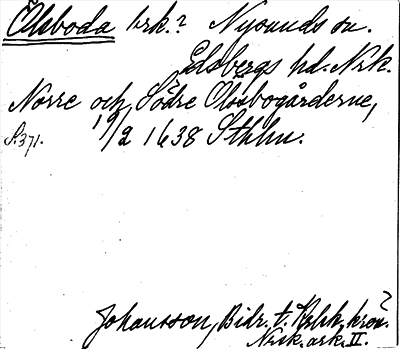 Ölsboda brk.? Nysunds sn.
Edsbergs hd. Nrk.
Norre och Södre Olssbogårderne,
19/2 1638 Sthlm.
S. 371.
Johansson, Bidr. t. krön.?
Nrik. ark. II.